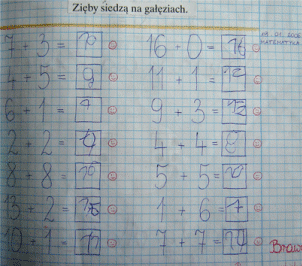 Zięby siedzą na gałęziach.
7 + 3 = 10 16 + 0 = 16
MATEMATYKA
4 + 5 = 9 11 + 1 = 12
6 + 1 = 7 9 + 3 = 12
2 + 2 = 4 4 + 4 = 8
8 + 8 = 5 + 5 =
13 + 2 = 15 1 + 6 = 7
10 + 1 = 11 7 + 7 = 14
Braw